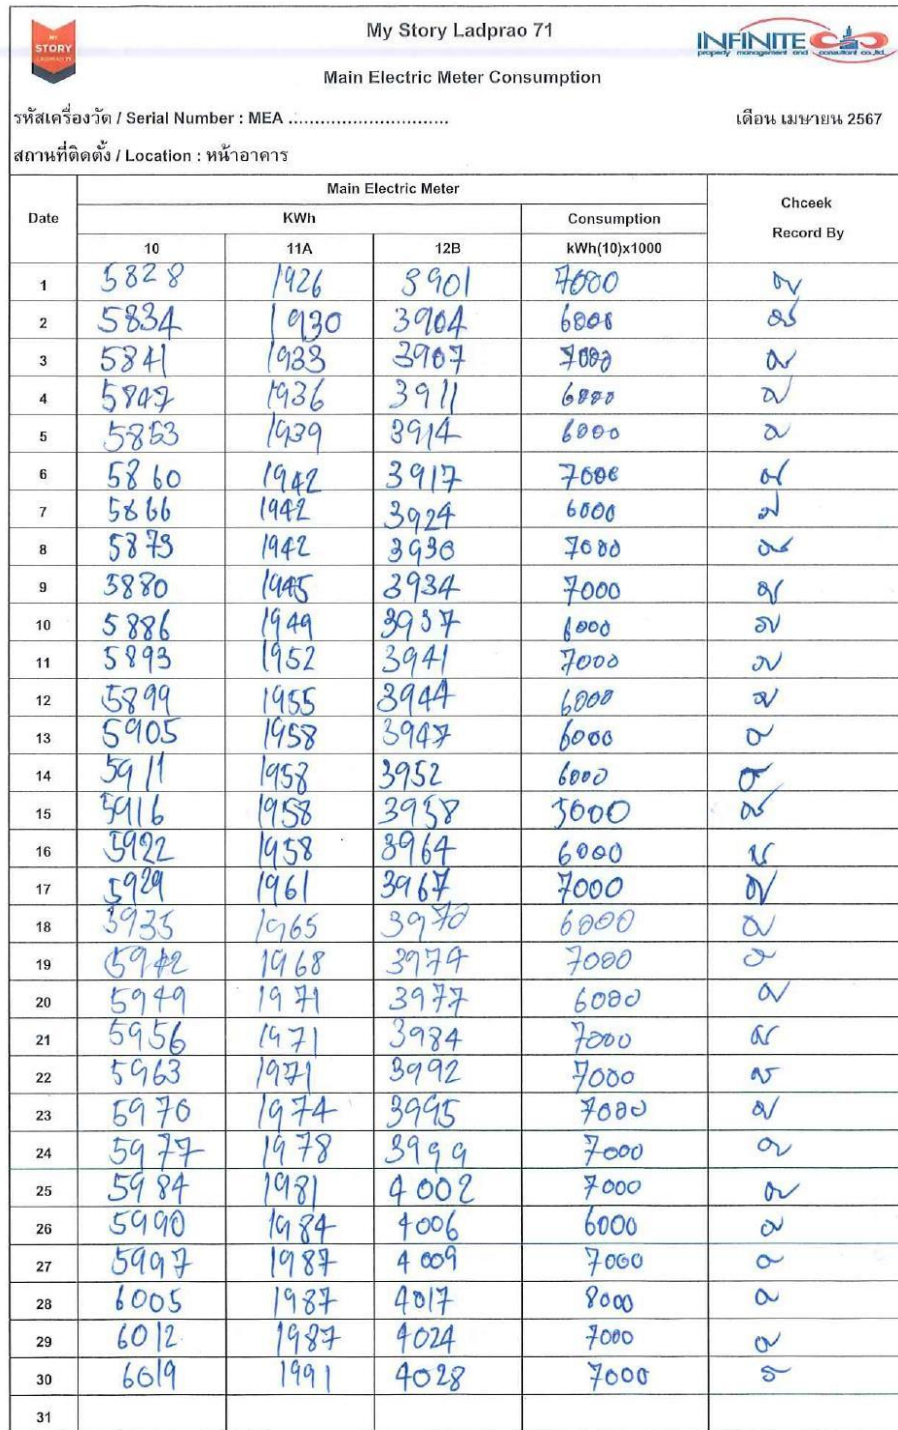 MY
STORY
LADPRAO 71
My Story Ladprao 71
INFINITE
property management and consultant co.,ltd.
Main Electric Meter Consumption
รหัสเครื่องวัด / Serial Number : MEA ..............................
เดือน เมษายน 2567
สถานที่ติดตั้ง / Location : หน้าอาคาร
Date Main Electric Meter Chceek Record By
KWh Consumption
10 11A 12B kWh(10)x1000
1 5828 1926 3901 7000
2 5834 1930 3904 6000
3 5841 1933 3907 7000
4 5847 1936 3911 6000
5 5853 1939 3914 6000
6 5860 1942 3917 7000
7 5866 1942 3924 6000
8 5873 1942 3930 7000
9 5880 1945 3934 7000
10 5886 1949 3937 6000
11 5893 1952 3941 7000
12 5899 1955 3944 6000
13 5905 1958 3947 6000
14 5911 1958 3952 6000
15 5916 1958 3958 5000
16 5922 1958 3964 6000
17 5929 1961 3967 7000
18 5935 1965 3970 6000
19 5942 1968 3974 7000
20 5949 1971 3977 6000
21 5956 1971 3984 7000
22 5963 1971 3992 7000
23 5970 1974 3995 7000
24 5977 1978 3999 7000
25 5984 1981 4002 7000
26 5990 1984 4006 6000
27 5997 1987 4009 7000
28 6005 1987 4017 8000
29 6012 1987 4024 7000
30 6019 1991 4028 7000
31